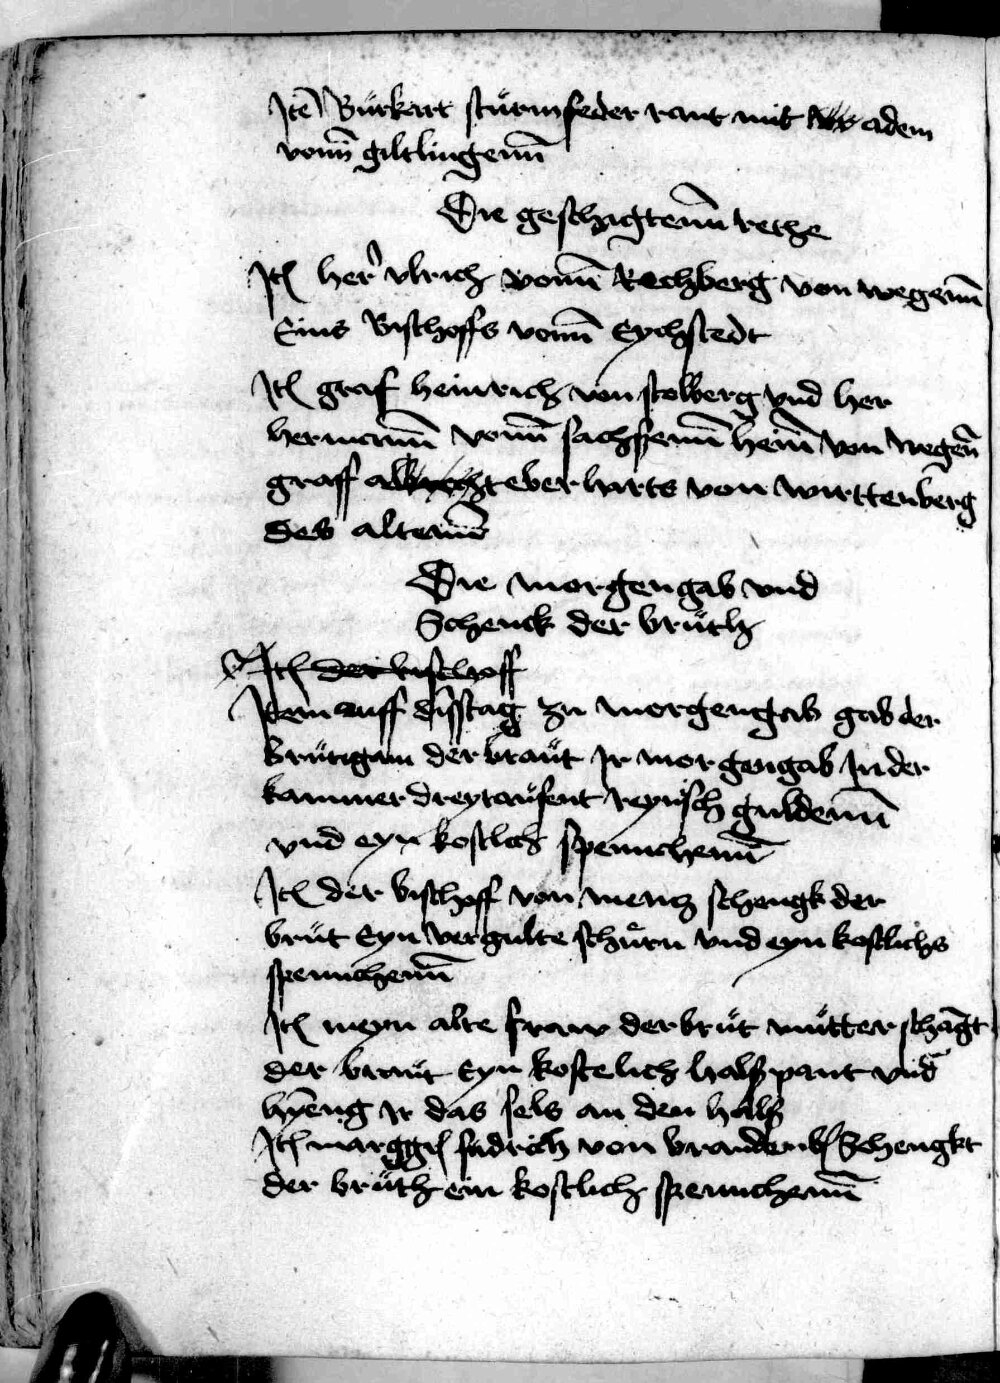 Itē Bürkart stürmfeder rant mit adem
vonn̄ giltlingenn̄
Die geschigtenn̄ rethe
Itē her ulrich vonn̄ Rechberg von wegenn̄
Eins Bischoffs vonn̄ Eychstedt
Itē graf heinrich von stolberg vnd her
hermann̄ vonn̄ sachssenn̄ heim̄ von wegen̄
graff albrecht eberharts von wirttenberg
des altenn̄
Die morgengab vnd
Schenck der brüth
Itē der bischoff
Item auff disstag zu morgengab gab der
brütigam der braüt Ir morgengab In der
kammer dreytaüsent reynisch guldenn̄
vnd eyn kostlich spennchenn̄
Itē der bischoff von mentz schengk der
brüt Eyn vergulte schürn vnd eyn kostlichs
spennchenn̄
Itē meyn alte fraw der brüt mütter schāgt
der braüt Eyn kostelich halsspant vnd
hyēng Ir das sels an den halss
Itē marggf fridrich von brandenb Schengkt
der brüth ein kostlich spennchenn̄